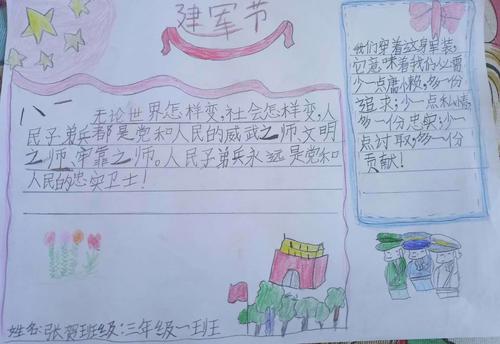 建军节
八一 无论世界怎样变,社会怎样变,人
民子弟兵都是党和人民的威武之师文明
之师,牢靠之师。人民子弟兵永远是党和
人民的忠实卫士!
我们穿着这身军装,
它意味着我们必需
少一点庸小赖,多一份
追求;少一点私情,
多一份忠实;少一
点讨取,多一份
贡献!
姓名:张贺班级:三年级一班班